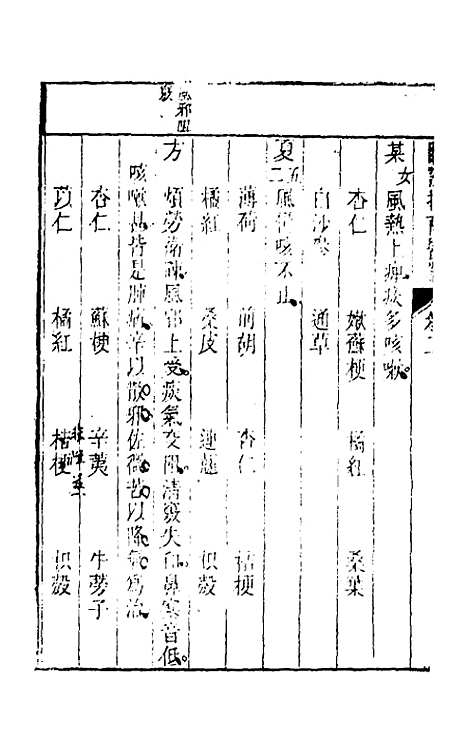 臨證指南醫案 卷二
某女 風熱上痹痰多咳嗽
杏仁 嫩蘇梗 橘紅 桑葉
白沙參 通草
夏五二 風鬱咳不止
薄荷 前胡 杏仁 桔梗
橘紅 桑皮 連翹 枳殼
方 煩勞 風 上受痰氣交阻清竅失和鼻塞音低
咳嗽甚皆是肺病辛以散邪佐微苦以降氣為治
杏仁 蘇梗 辛夷 牛蒡子
苡仁 橘紅 桔梗 枳殼
風邪阻